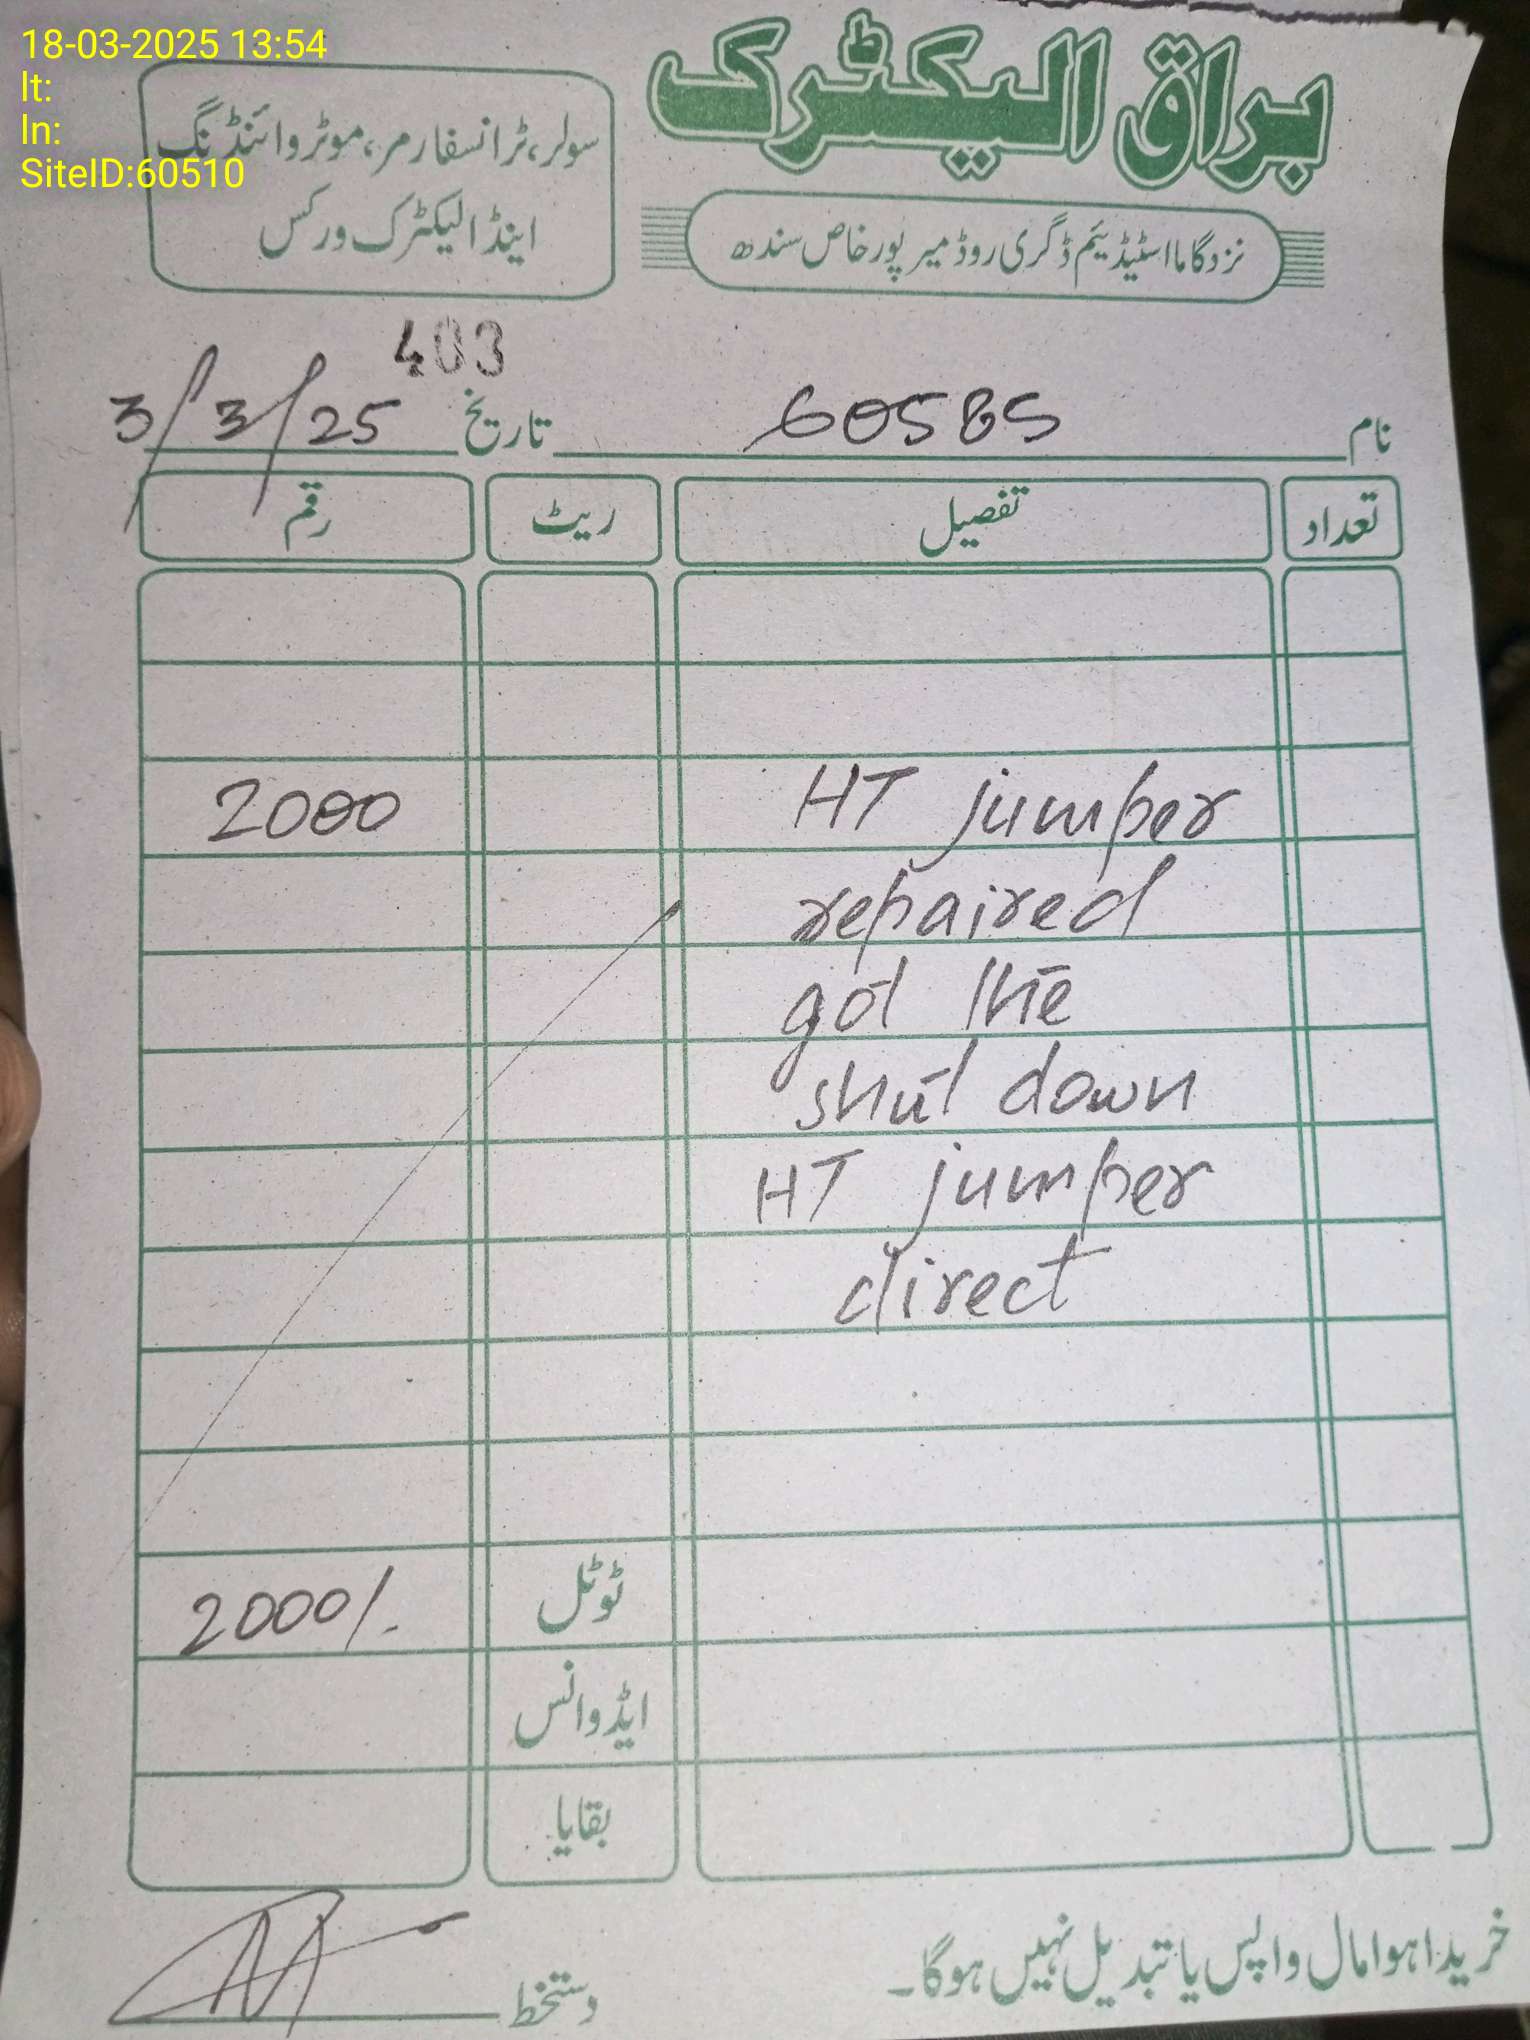 18-03-2025 13:54
lt:
ln:
SiteID:60510
براق الیکٹرک
سولر، ٹرانسفارمر، موٹر وائنڈنگ
اینڈ الیکٹرک ورکس
نزد گاما اسٹیڈیئم ڈگری روڈ میرپورخاص سندھ
403
نام 60585 تاریخ 3/3/25
تعداد تفصیل ریٹ رقم
HT jumper 2000
repaired
got the
shut down
HT jumper
direct
ٹوٹل 2000/-
ایڈوانس
بقایا
خریدا ہوا مال واپس یا تبدیل نہیں ہوگا۔
دستخط